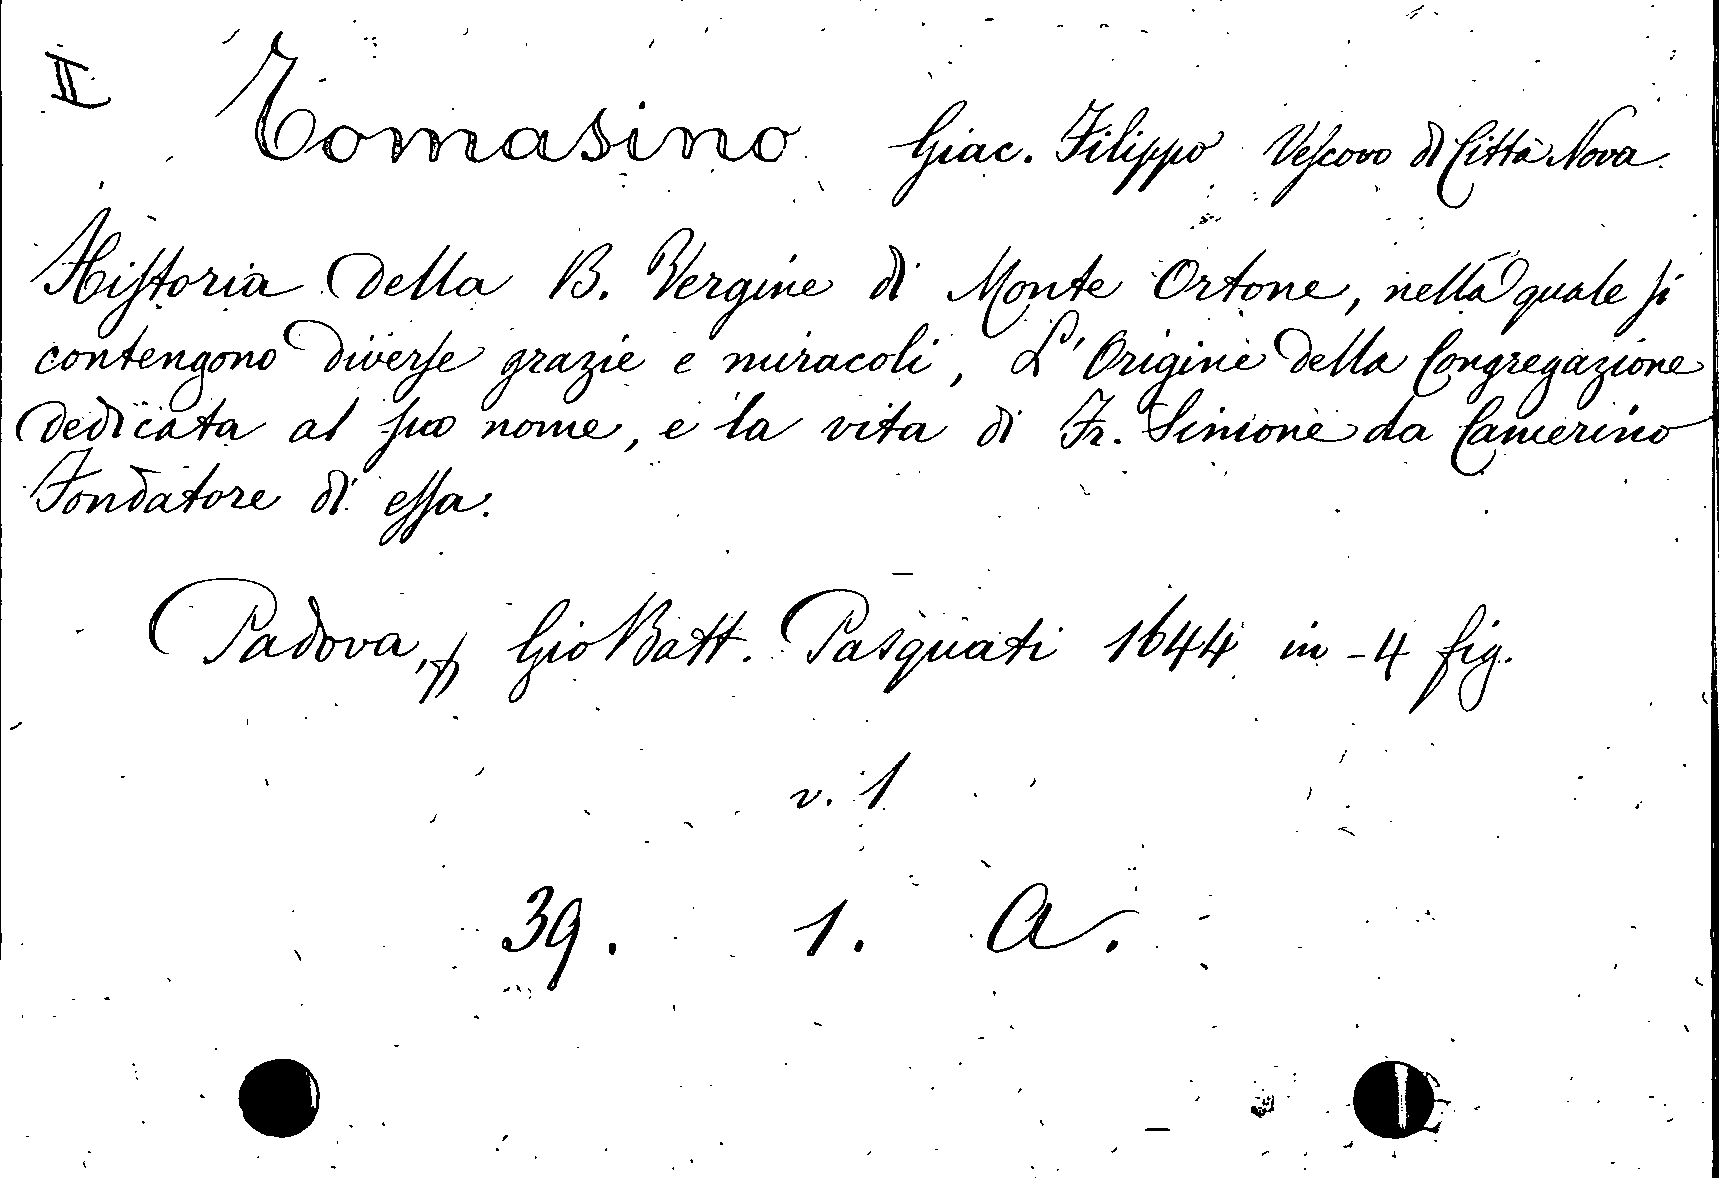 II Tomasino Giac. Filippo Veſcovo di Città Nova
Hiſtoria della B. Vergine di Monte Ortone, nella quale ſi
contengono diverſe grazie e miracoli, L'Origine della Congregazione
dedicata al ſuo nome, e la vita di Fr. Simone da Camerino
Fondatore di eſſa.
Padova, Gio Batt. Pasquati 1644 in-4 fig.
v. 1
39. 1. A.